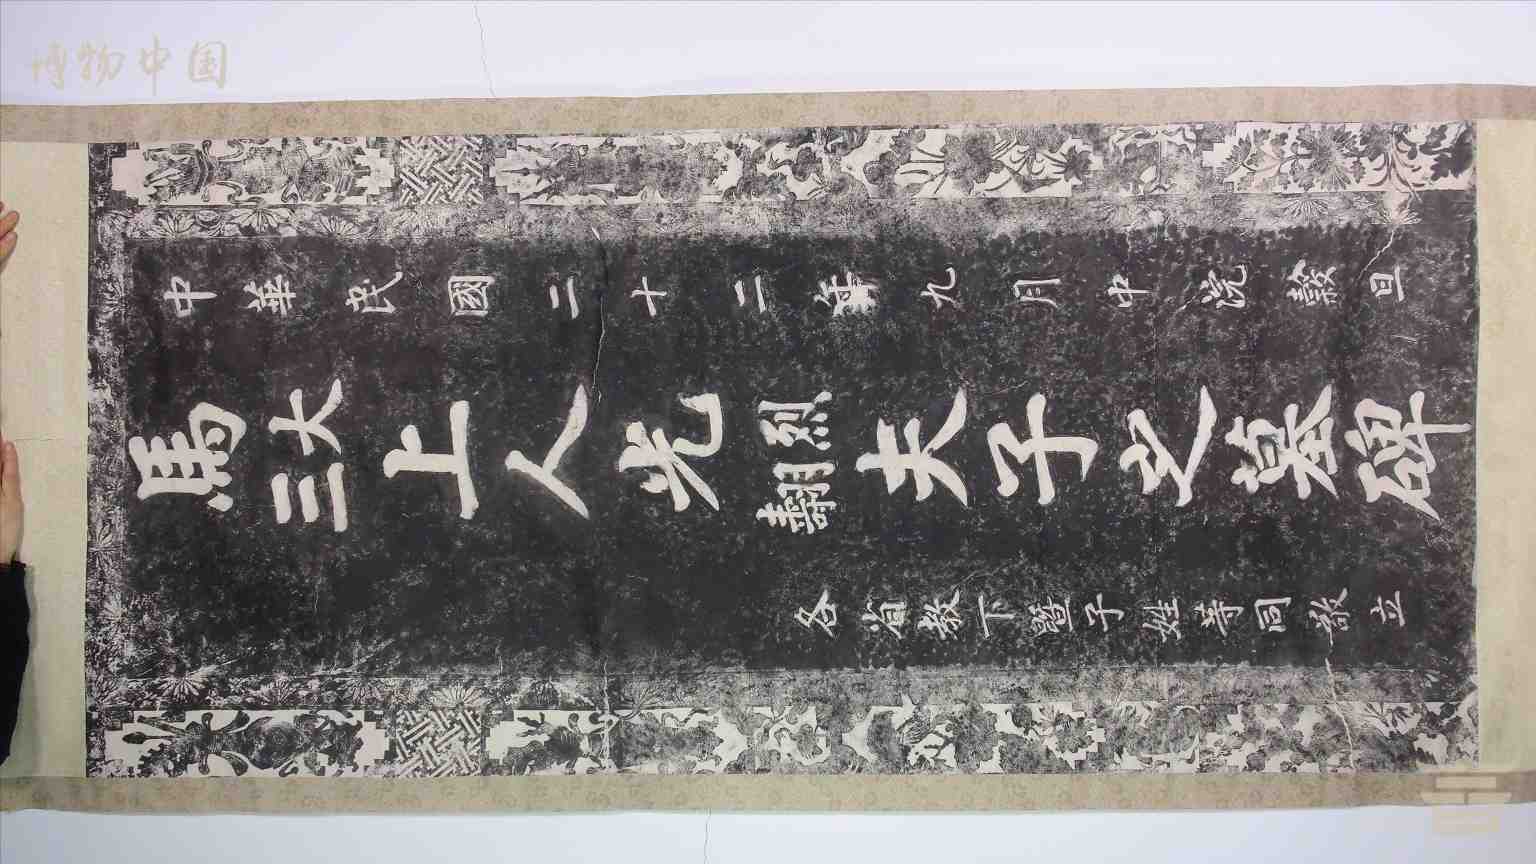 中華民國二十二年九月中浣穀旦
馬大三上人光烈翿夫子之墓碑
各省教下暨子姪等同敬立
博物中国